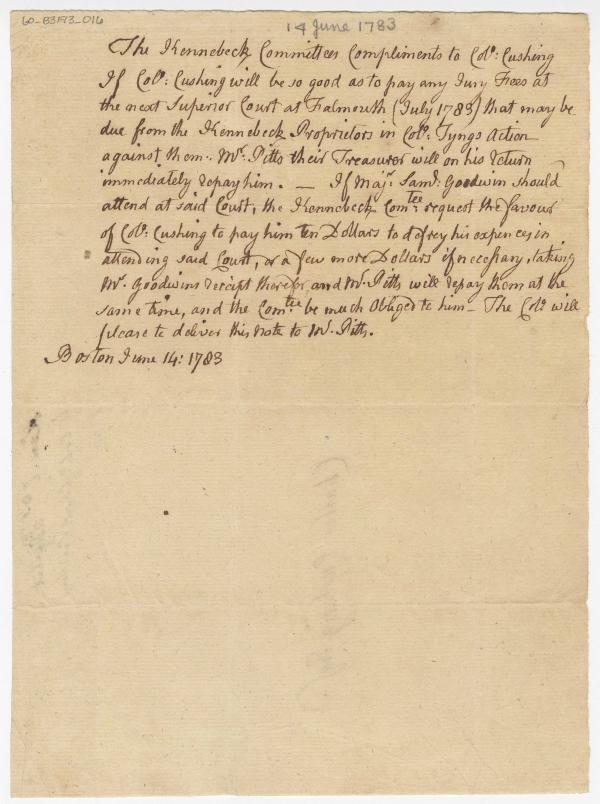 60-B3F73_016
14 June 1783
The Kennebeck Committees Compliments to Colo: Cushing
If Colo: Cushing will be so good as to pay any Jury Fees at
the next Superior Court at Falmouth (July 1783) that may be
due from the Kennebeck Proprietors in Colo: Tyngs Action
against them: Mr. Pitts their Treasurer will on his return
immediately repay him. — If Majr. Saml: Goodwin should
attend at said Court, the Kennebeck Comtee request the favour
of Colo: Cushing to pay him ten Dollars to defrey his expences in
attending said Court, or a few more Dollars if necessary, taking
Mr. Goodwins receipt therefor and Mr. Pitts will repay them at the
same time, and the Comtee be much Obliged to him – The Colo will
please to deliver this note to Mr. Pitts.
Boston June 14: 1783